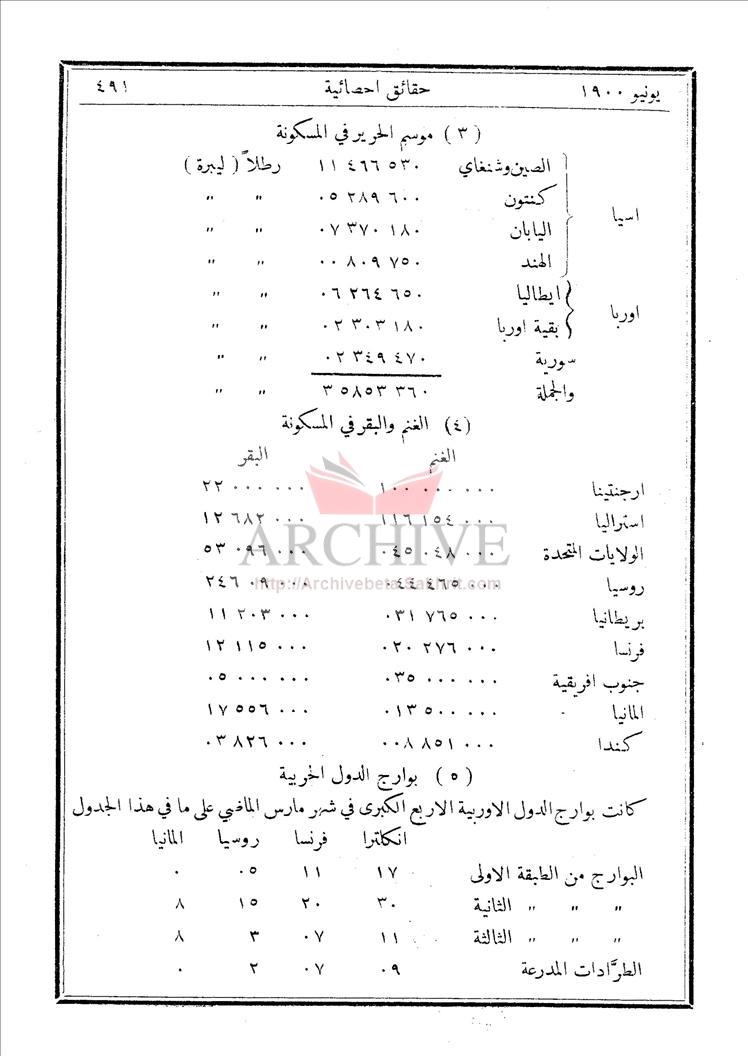 يونيو ١٩٠٠ حقائق احصائية ٤٩١
( ٣ ) موسم الحرير في المسكونة
الصين وشنغاي ١١ ٤٦٦ ٥٣٠ رطلاً ( ليبرة )
كنتون ٠٥ ٢٨٩ ٦٠٠ " "
اسيا
اليابان ٠٧ ٣٧٠ ١٨٠ " "
الهند ٠٠ ٨٠٩ ٧٥٠ " "
ايطاليا ٠٦ ٢٦٤ ٦٥٠ " "
اوربا
بقية اوربا ٠٢ ٣٠٣ ١٨٠ " "
سورية ٠٢ ٣٤٩ ٤٧٠ " "
والجملة ٣٥٨٥٣ ٣٦٠ " "
(٤) الغنم والبقر في المسكونة
الغنم البقر
ارجنتينا ١٠٠ ٠٠٠ ٠٠٠ ٢٢ ٠٠٠ ٠٠٠
استراليا ١١٦ ١٥٤ ٠٠٠ ١٢ ٦٨٢ ٠٠٠
ARCHIVE
الولايات المتحدة ٠٤٥ ٠٤٨ ٠٠٠ ٥٣ ٠٩٦ ٠٠٠
http://Archivebeta.Sakhrit.com
روسيا ٠٤٤ ٤٦٥ ٠٠٠
بريطانيا ٠٣١ ٧٦٥ ٠٠٠ ١١ ٢٠٣ ٠٠٠
فرنسا ٠٢٠ ٢٧٦ ٠٠٠ ١٢ ١١٥ ٠٠٠
جنوب افريقية ٠٣٥ ٠٠٠ ٠٠٠ ٠٥ ٠٠٠ ٠٠٠
المانيا ٠١٣ ٥٠٠ ٠٠٠ ١٧ ٥٥٦ ٠٠٠
كندا ٠٠٨ ٨٥١ ٠٠٠ ٠٣ ٨٢٦ ٠٠٠
( ٥ ) بوارج الدول الحربية
كانت بوارج الدول الاوربية الاربع الكبرى في شهر مارس الماضي على ما في هذا الجدول
انكلترا فرنسا روسيا المانيا
البوارج من الطبقة الاولى ١٧ ١١ ٠٥ ٠
" " " الثانية ٣٠ ٢٠ ١٥ ٨
" " " الثالثة ١١ ٠٧ ٣ ٨
الطرَّادات المدرعة ٠٩ ٠٧ ٢ ٠